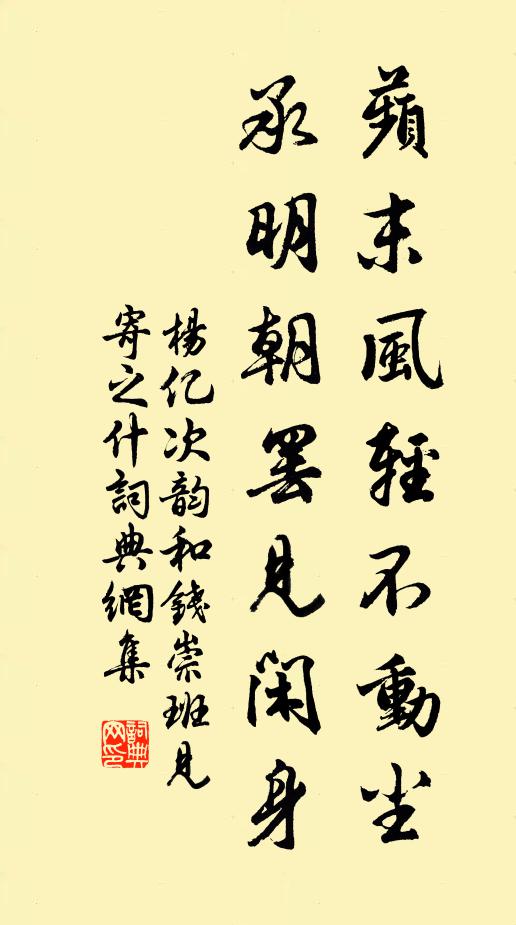 蘋末風輕不動尘
承明朝罢見閑身
楊亿次韵和錢崇班見
寄之什詞典網集
詞典網印